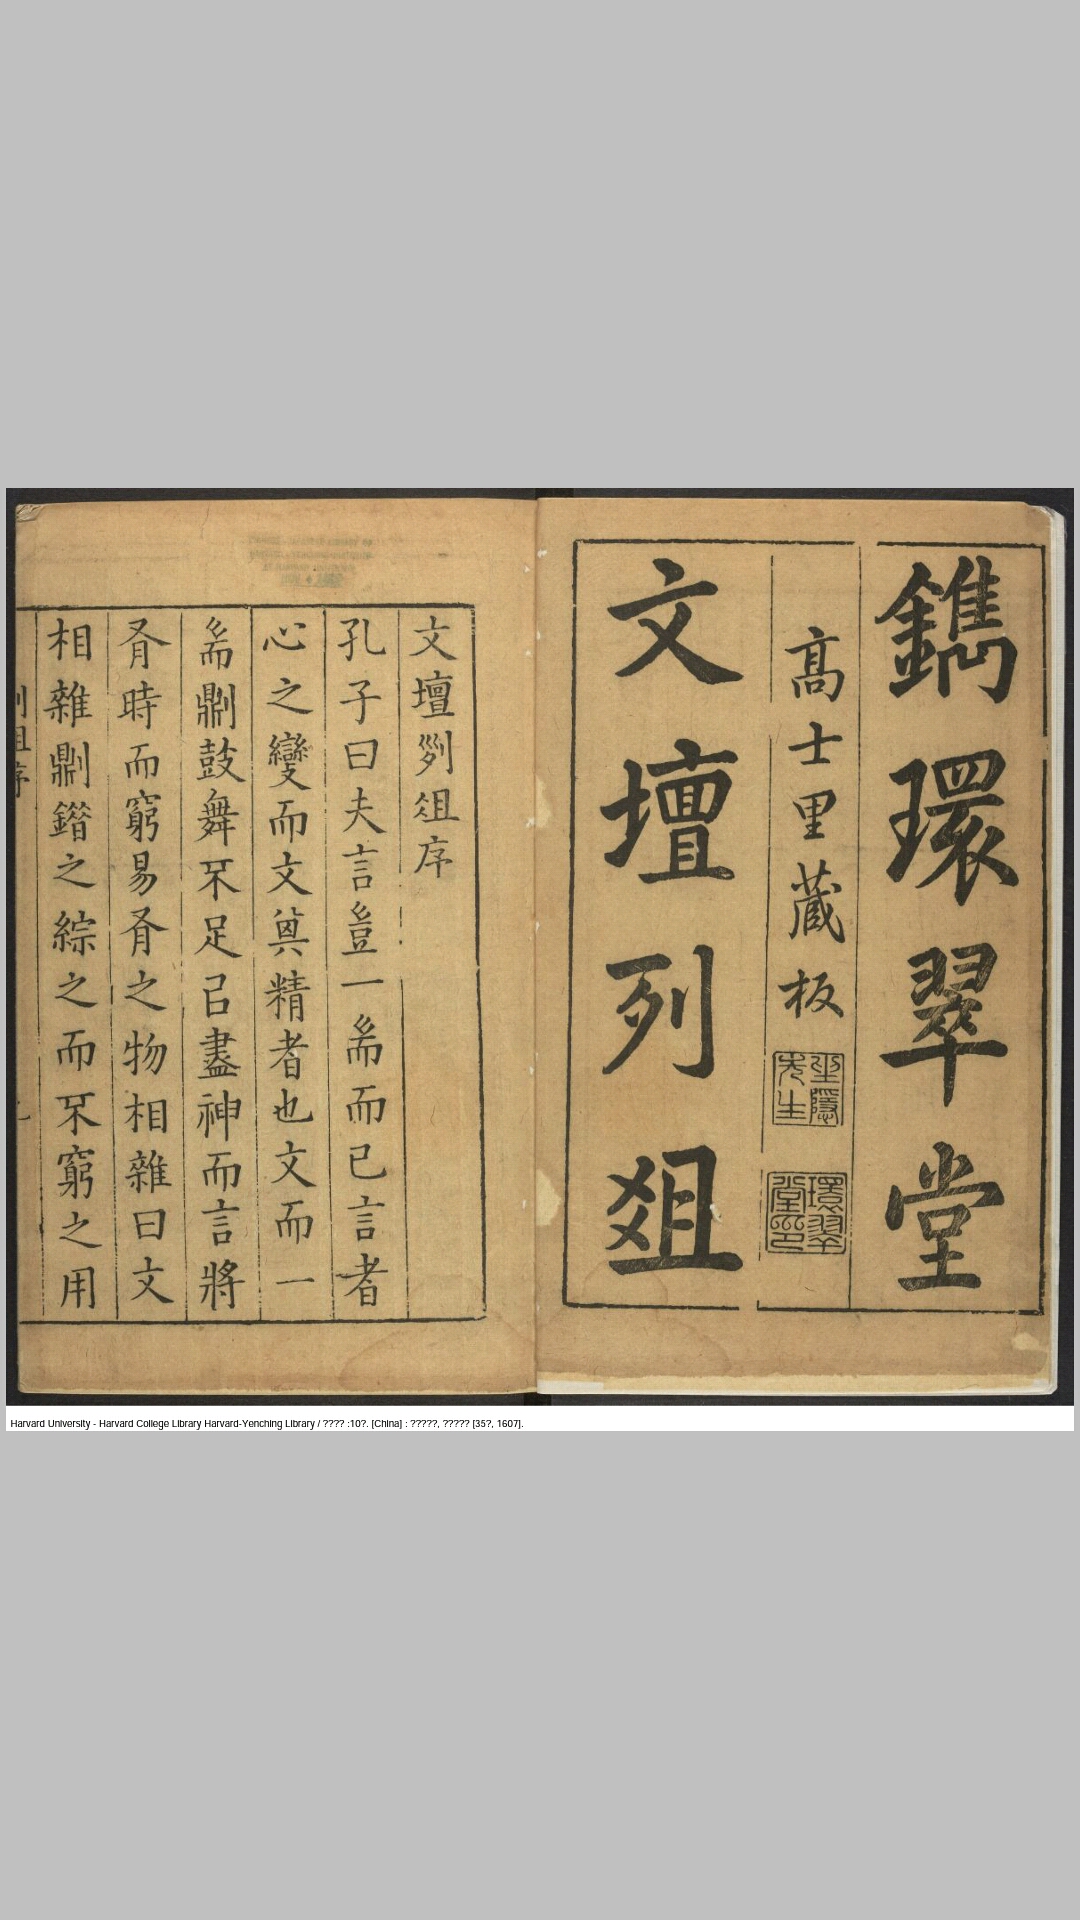 鐫環翠堂
高士里藏板
坐隱先生
環翠堂印
文壇列俎
文壇列俎序
孔子曰夫言豈一耑而已言者
心之變而文其精者也文而一
耑則鼓舞不足㠯盡神而言將
有時而窮易有之物相雜曰文
相雜則錯之綜之而不窮之用
列俎序
Harvard University - Harvard College Library Harvard-Yenching Library / ???? :10?. [China] : ?????, ????? [35?, 1607].